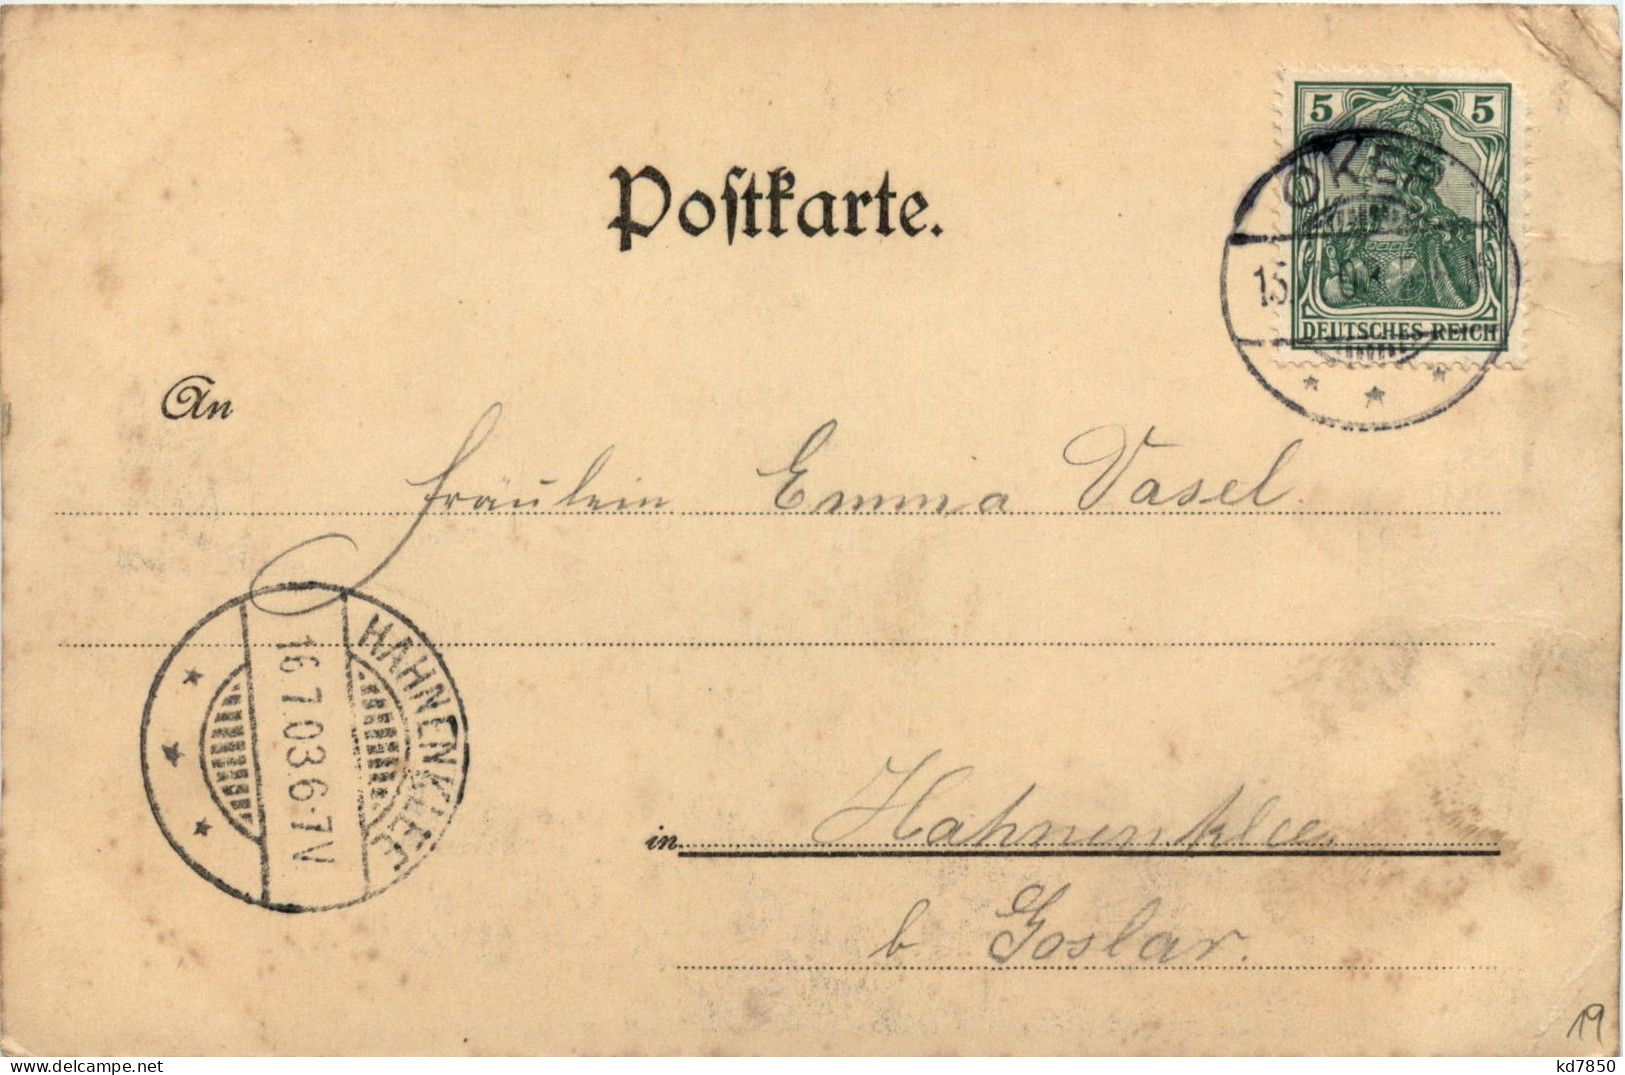 Postkarte.
5 5
OKER
15. 03
DEUTSCHES REICH
An
Fräulein Emma Vasel.
HAHNENKLEE
16.7.03.6-7V
in Hahnenklee
b Goslar.
19
delcampe.net
kd7850